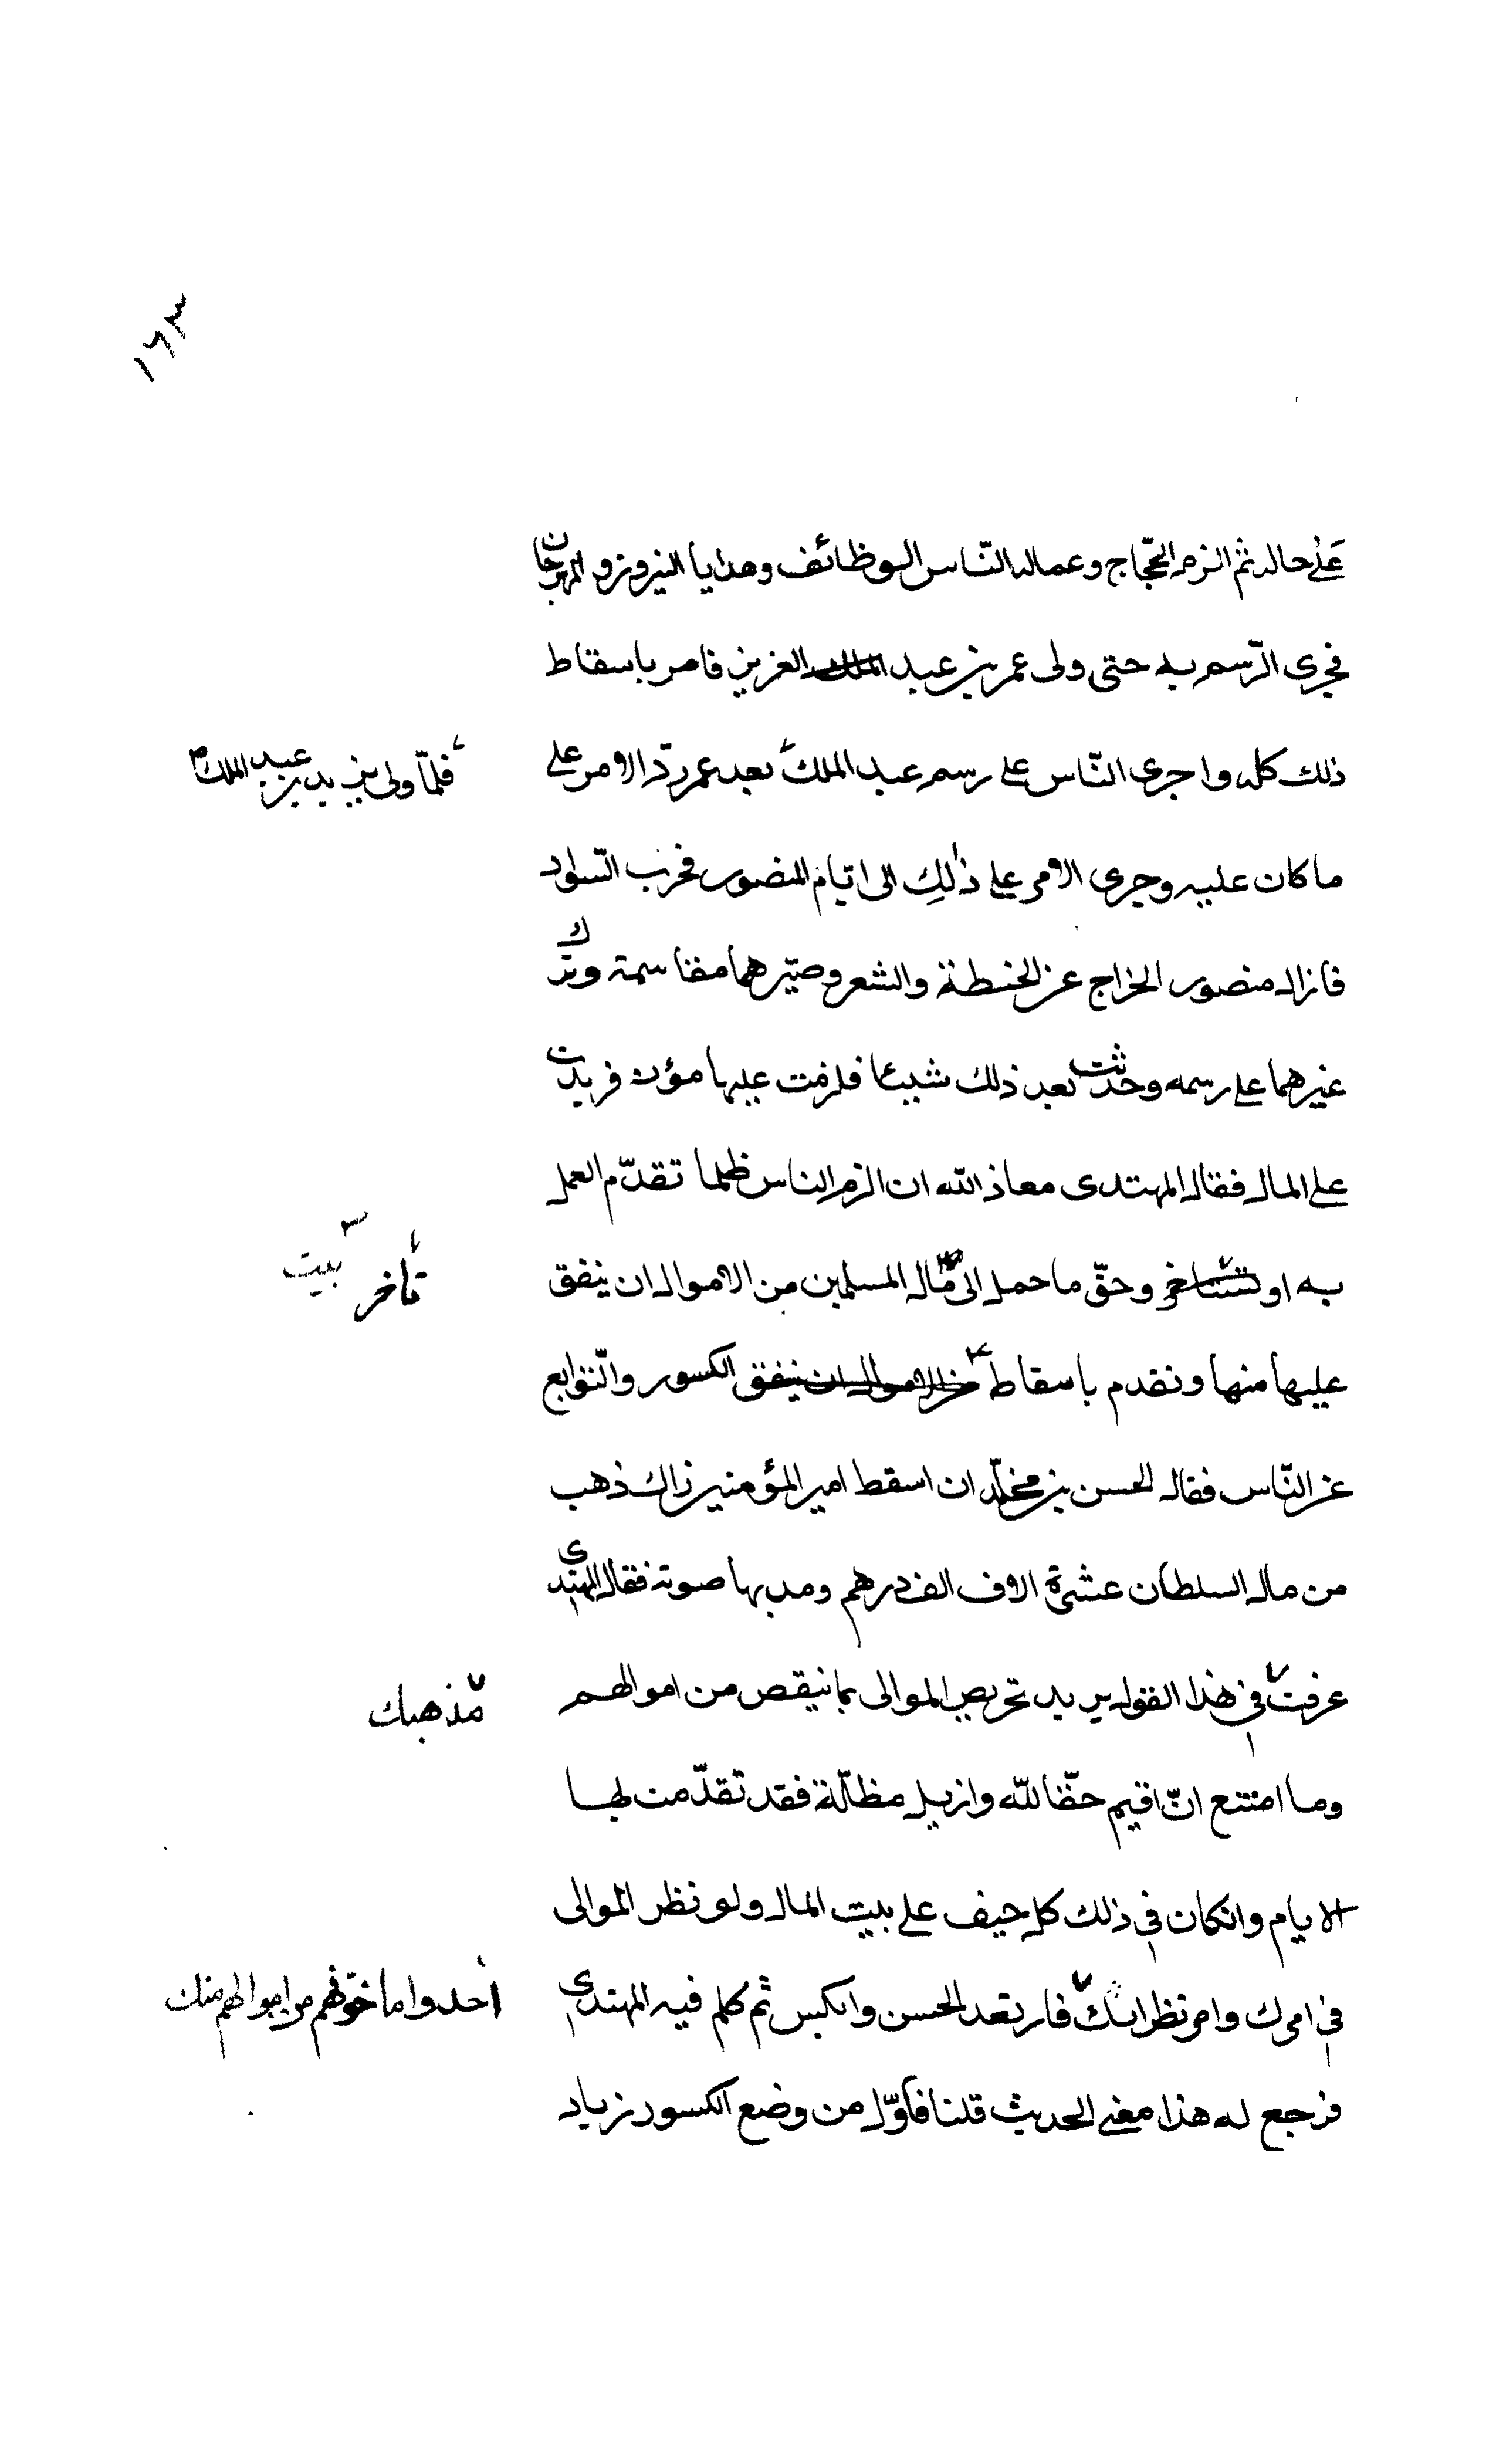 ١٦٣
على حاله ثم الزم الحجّاج وعماله النّاس الوظائف وهدايا النيروز والمهرجان
فجرى الرّسم به حتى ولى عمر بن عبد الملك العزيز فامر باسقاط
ذلك كله واجرى النّاس على رسم عبد الملك بعد عمر ردّ الامر على
فلمّا ولى يزيد بن عبد الملك
ما كان عليه وجرى الامر على ذلك الى ايّام المنصور فخرب السّواد
فازال منصور الخراج عن الحنطة والشعر وصيّرهما مقاسمة وترك
غيرهما على رسمه وحدثت بعد ذلك شيئا فلزمت عليها مؤن فزيدت
على المال فقال المهتدى معاذ الله ان الزم الناس ظلما تقدّم العمل
به او وحقّ ما حمل الى مال المسلمين من الاموال ان ينفق
تاخر بيت
عليها منها ونقدم باسقاط من الاموال ان ينفق الكسور والتّوابع
عن النّاس فقال الحسن بن مخلّد ان اسقط امير المؤمنين ذاك ذهب
من مال السلطان عشرة الاف الف درهم ومد بها صوته فقال المهتدى
عرفت فى هذا القول يريد تحريض الموالى بما ينقص من اموالهم
مذهبك
وما امتنع انّ اقيم حقّا لله وازيل مظلّة فقد تقدّمت لها
الايام وان كان فى ذلك كل حيف على بيت المال ولو نظر الموالى
فى امرك وامر نظرائك فارتعد الحسن وابكس ثم كلم فيه المهتدى
اخذوا ما خوّفهم من اموالهم منك
فرجع له هذا معنى الحديث قلنا فاوّل من وضع الكسور زياد